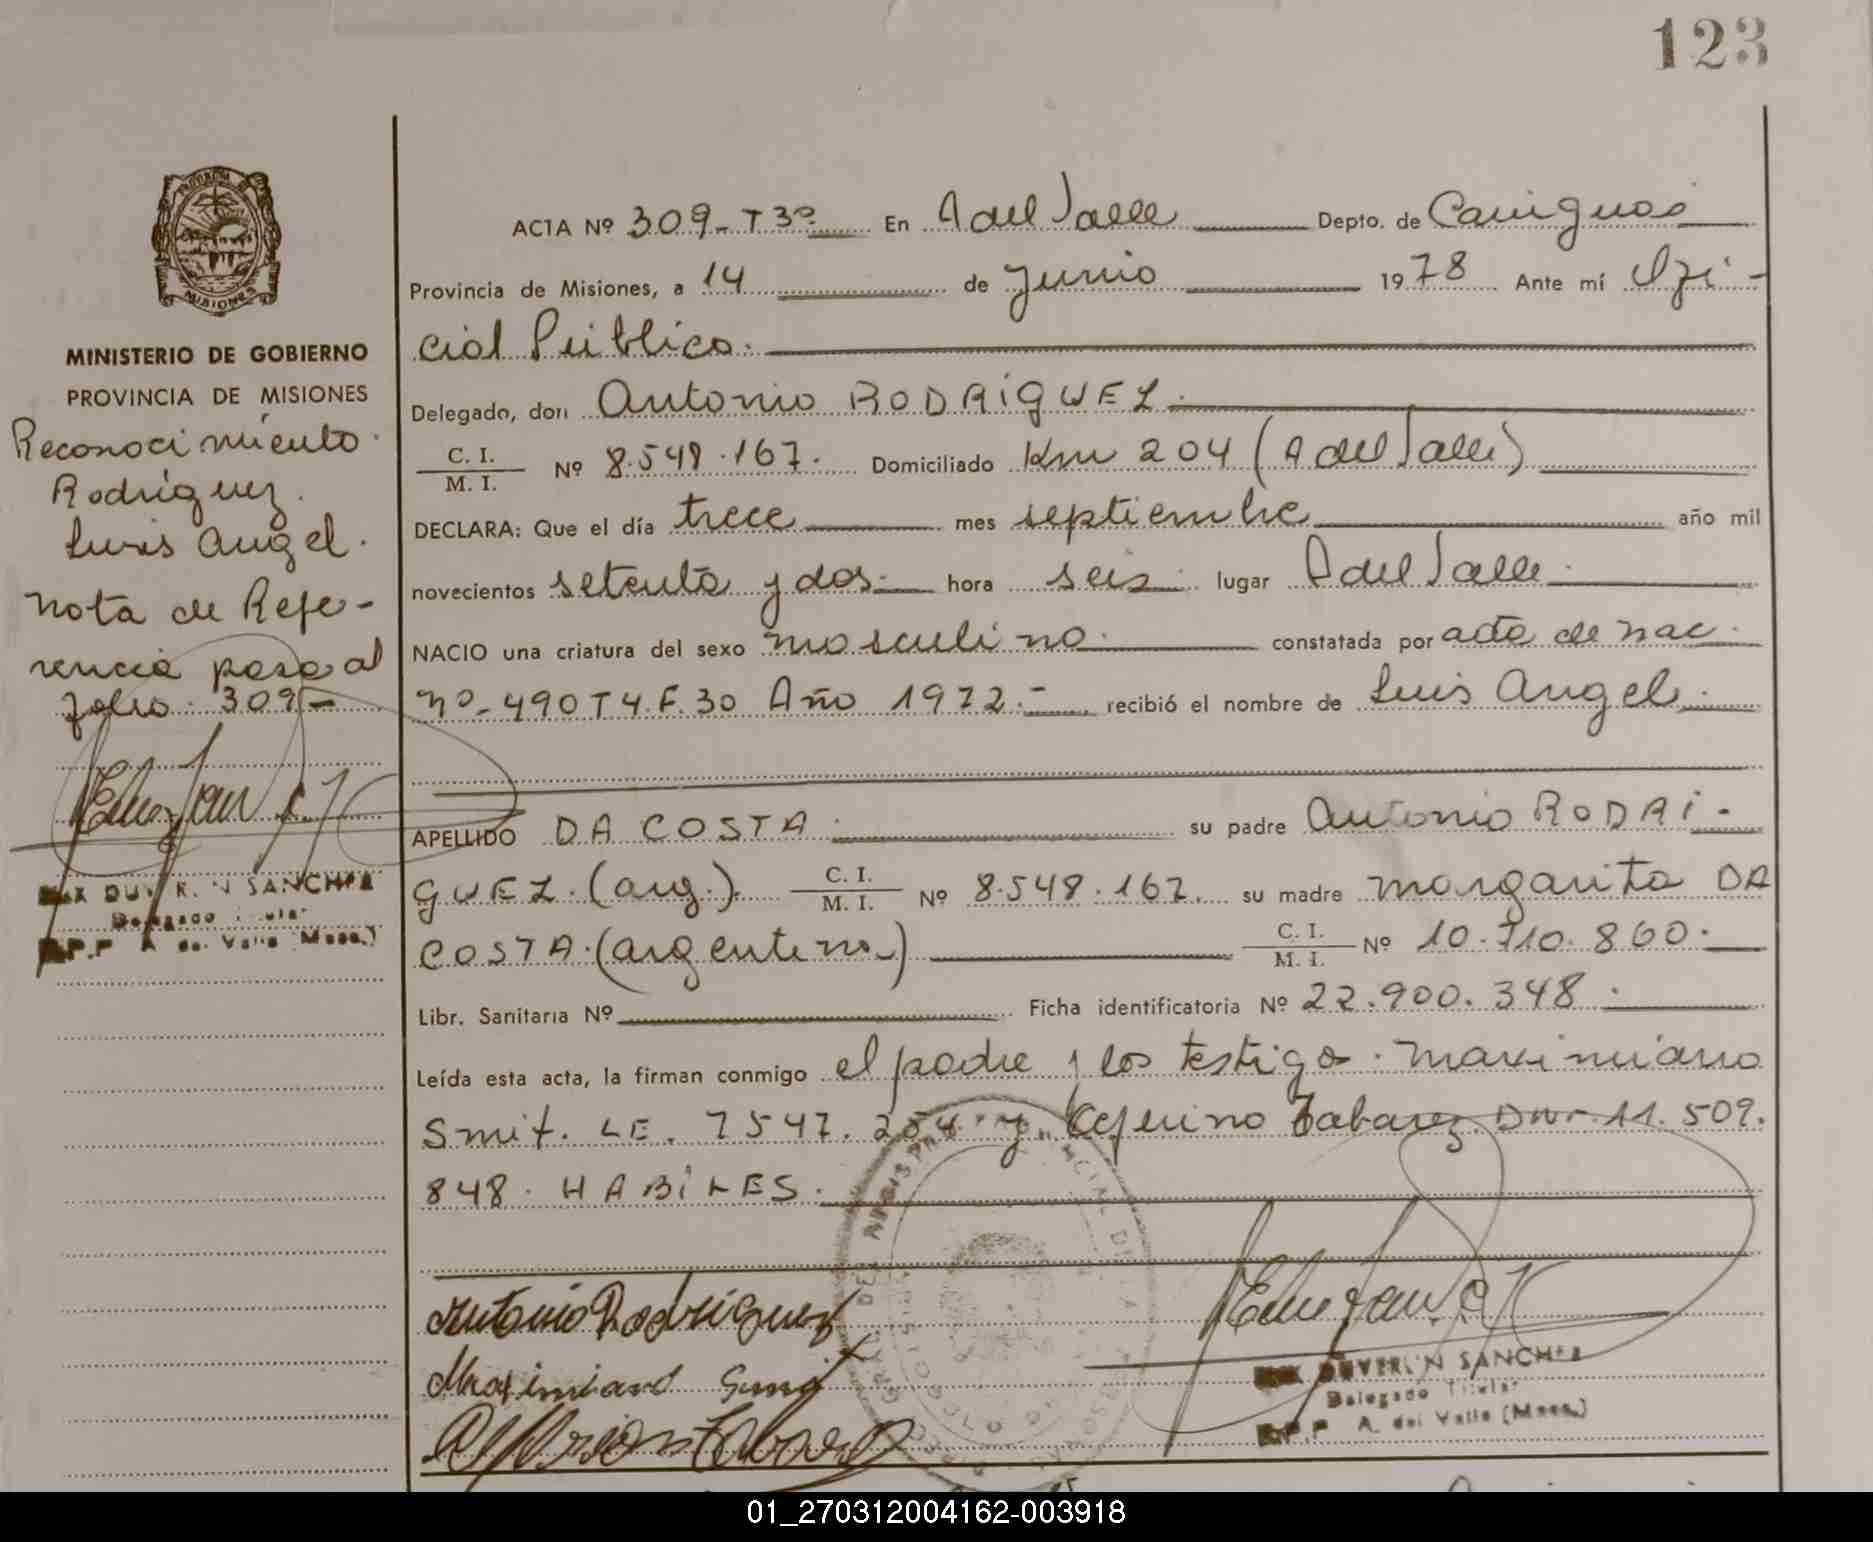 123
PROVINCIA DE
MISIONES
MINISTERIO DE GOBIERNO
PROVINCIA DE MISIONES
Reconocimiento
Rodriguez.
Luis Angel.
Nota de Refe-
rencia pasa al
folio 309-
DUV R. N SANCHEZ
Delegado Titular
A. del Valle (Mnes.)
ACTA Nº 309-T3º En A del Valle Depto. de Cainguas
Provincia de Misiones, a 14 de Junio 1978 Ante mí Ofi-
cial Público.
Delegado, don Antonio RODRIGUEZ.
C. I. / M. I. Nº 8.548.167. Domiciliado Km 204 (A del Valle)
DECLARA: Que el día trece mes septiembre año mil
novecientos setenta y dos.- hora seis lugar A del Valle.
NACIO una criatura del sexo masculino. constatada por acta de nac.
Nº-490T4.F.30 Año 1972.- recibió el nombre de Luis Angel.
APELLIDO DA COSTA. su padre Antonio RODRI-
GUEZ.(arg.). C. I. / M. I. Nº 8.548.167. su madre Margarita DA
COSTA.(argentina) C. I. / M. I. Nº 10.710.860.
Libr. Sanitaria Nº Ficha identificatoria Nº 22.900.348.
Leída esta acta, la firman conmigo el padre y los testigo. Maximiano
Smit. LE. 7547.254 y Ceferino Tabarez DNI. 11.509.
848. HABILES.
Antonio Rodriguez
Maximiano Smit
DUVER N SANCHEZ
Delegado Titular
A. del Valle (Mnes.)
01_270312004162-003918